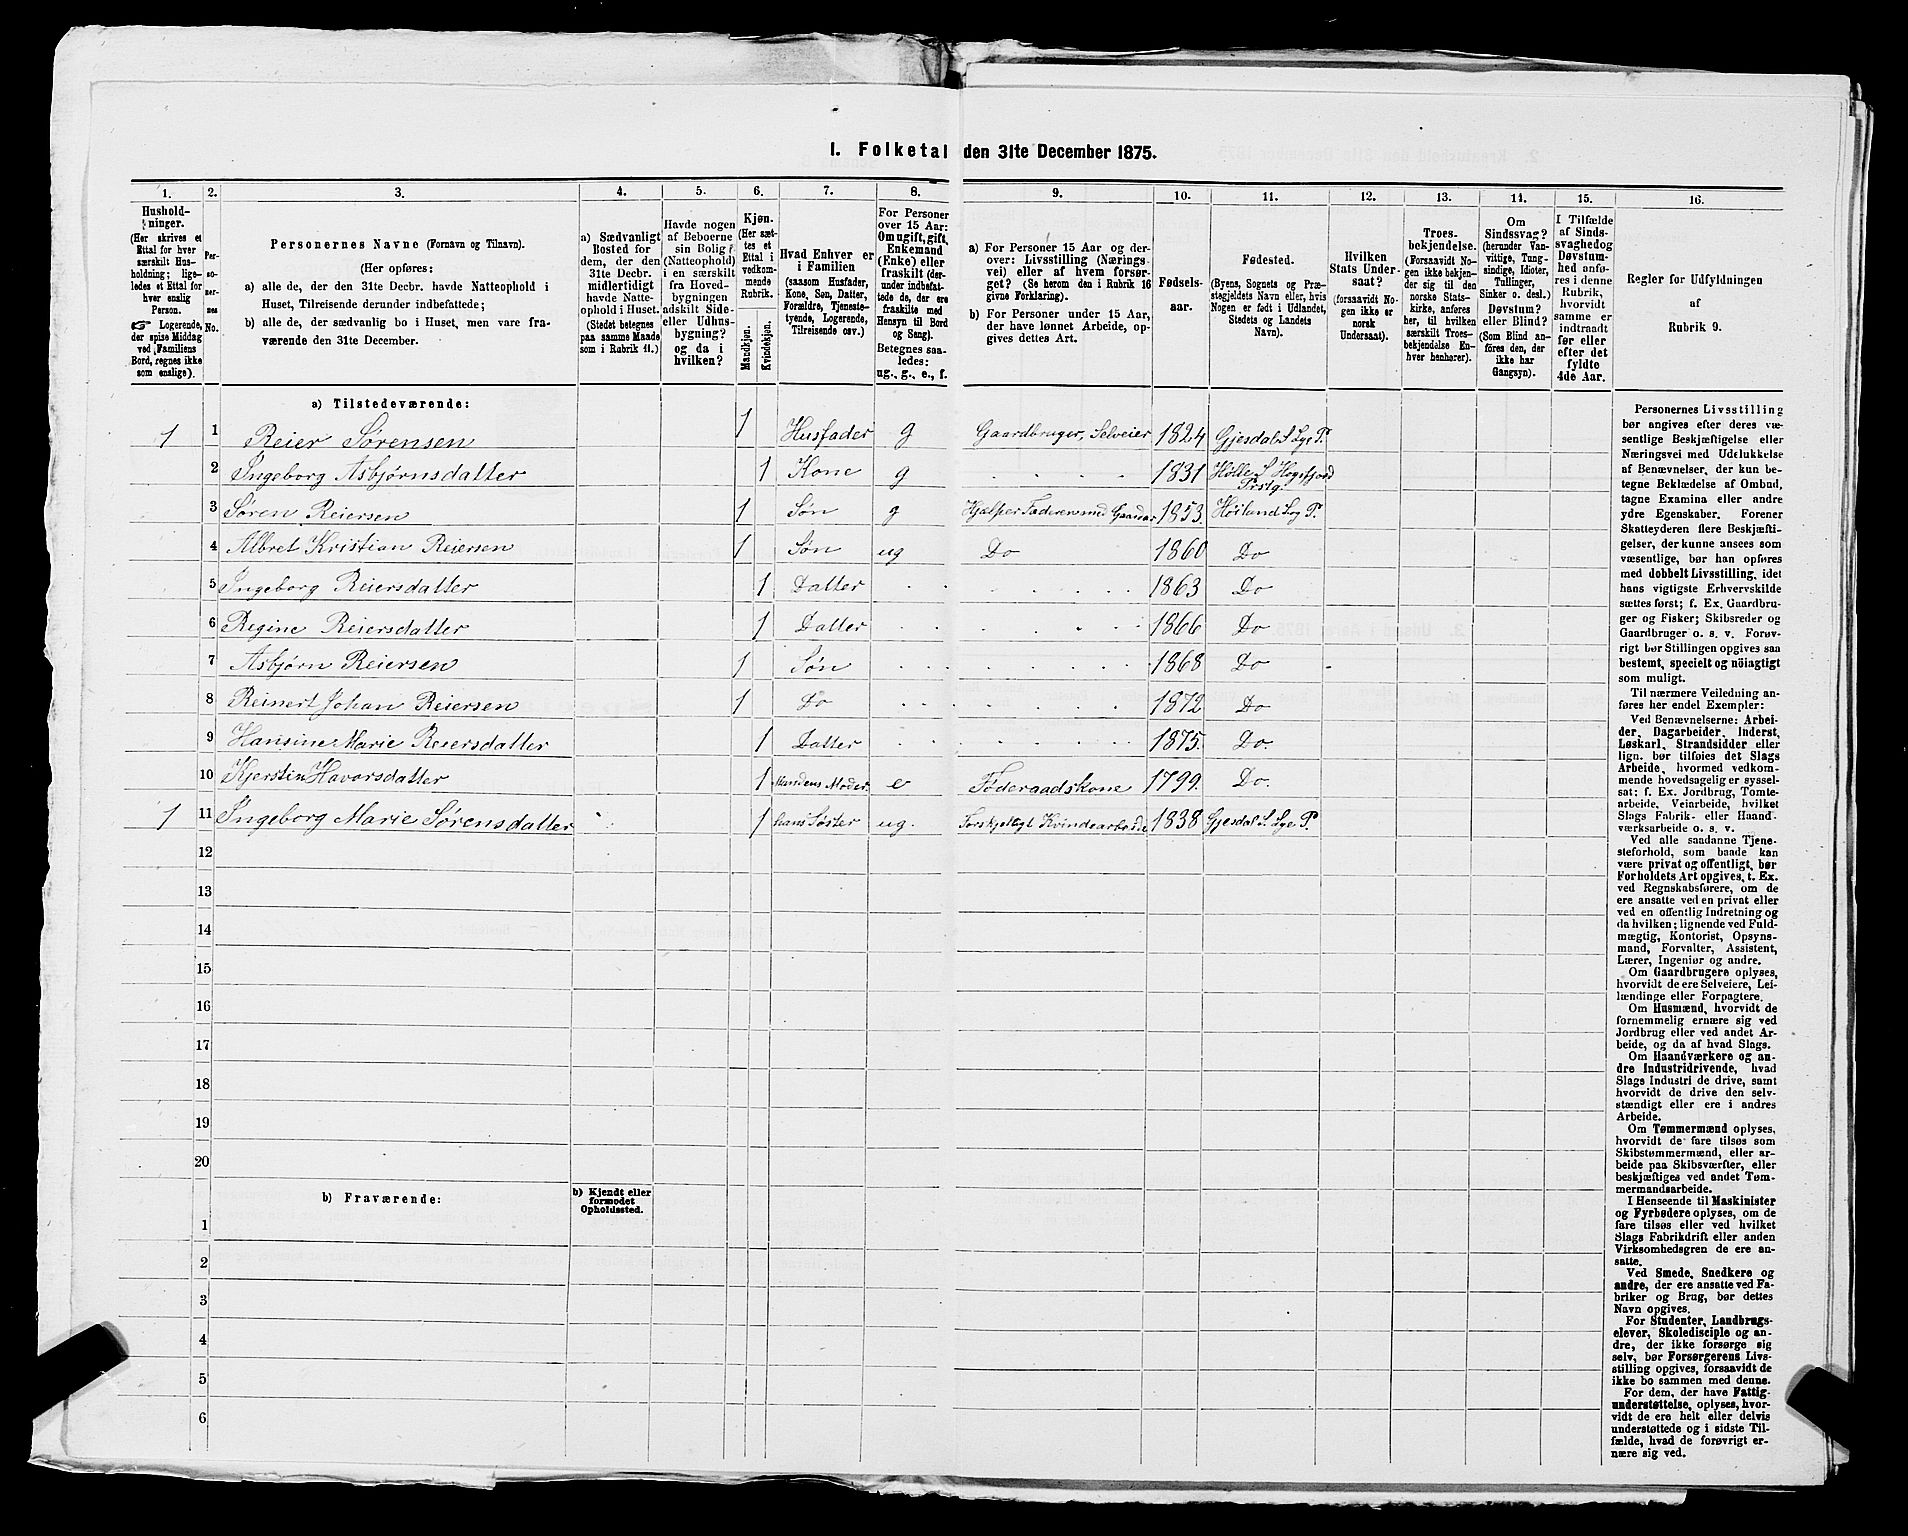 1. Folketal den 31te December 1875.
1. 2. 3. 4. 5. 6. 7. 8. 9. 10. 11. 12. 13. 14. 15. 16.
Hushold-
ninger.
(Her skrives et
Ettal for hver
særskilt Hus-
holdning; lige-
ledes et Ettal for
hver enslig
Person.
☞ Logerende,
der spise Middag
ved Familiens
Bord, regnes ikke
som enslige).
Per-
so-
ner-
nes
No.
Personernes Navne (Fornavn og Tilnavn).
(Her opføres:
a) alle de, der den 31te Decbr. havde Natteophold i
Huset, Tilreisende derunder indbefattede;
b) alle de, der sædvanlig bo i Huset, men vare fra-
værende den 31te December.
a) Sædvanligt
Bosted for
dem, der den
31te Decbr.
midlertidigt
havde Natte-
ophold i Huset.
(Stedet betegnes
paa samme Maade
som i Rubrik 11.)
Havde nogen
af Beboerne
sin Bolig
(Natteophold)
i en særskilt
fra Hoved-
bygningen
adskilt Side-
eller Udhus-
bygning?
og da i
hvilken?
Kjøn.
(Her sæt-
tes et
Ettal i
vedkom-
mende
Rubrik.
Mandkjøn.
Kvindekjøn.
Hvad Enhver er
i Familien
(saasom Husfader,
Kone, Søn, Datter,
Forældre, Tjeneste-
tyende, Logerende,
Tilreisende osv.)
For Personer
over 15 Aar:
Om ugift, gift,
Enkemand
(Enke) eller
fraskilt (der-
under indbefat-
tede de, der ere
fraskilte med
Hensyn til Bord
og Seng).
Betegnes saa-
ledes:
ug., g., e., f.
a) For Personer 15 Aar og der-
over: Livsstilling (Nærings-
vei) eller af hvem forsør-
get? (Se herom den i Rubrik 16
givne Forklaring).
b) For Personer under 15 Aar,
der have lønnet Arbeide, op-
gives dettes Art.
Fødsels-
aar.
Fødested.
(Byens, Sognets og Præ-
stegjeldets Navn eller, hvis
Nogen er født i Udlandet,
Stedets og Landets
Navn).
Hvilken
Stats Under-
saat?
(forsaavidt No-
gen ikke er
norsk
Undersaat).
Troes-
bekjendelse.
(Forsaavidt No-
gen ikke bekjen-
der sig til den
norske Stats-
kirke, anføres
her, til hvilken
særskilt Troes-
bekjendelse En-
hver henhører).
Om
Sindssvag?
(herunder Van-
vittige, Tung-
sindige, Idioter,
Tullinger,
Sinker o. desl.)
Døvstum?
eller Blind?
(Som Blind an-
föres den, der
ikke har
Gangsyn).
I Tilfælde
af Sinds-
svaghed og
Døvstum-
hed anfø-
res i denne
Rubrik,
hvorvidt
samme er
indtraadt
før eller
efter det
fyldte
4de Aar.
Regler for Udfyldningen
af
Rubrik 9.
a) Tilstedeværende:
1 1 Reier Sørensen 1 Husfader g Gaardbruger, Selveier 1824 Gjesdal S. Lye P.
2 Ingeborg Asbjørnsdatter 1 Kone g 1831 Hølle S. Høgsfjord
Prstg.
3 Søren Reiersen 1 Søn g Hjælper Faderen med Gaardar 1853 Høiland Sog P.
4 Albret Kristian Reiersen 1 Søn ug Do 1860 Do
5 Ingeborg Reiersdatter 1 Datter 1863 Do
6 Regine Reiersdatter 1 Datter 1866 Do
7 Asbjørn Reiersen 1 Søn 1868 Do
8 Reinert Johan Reiersen 1 Do 1872 Do
9 Hansine Marie Reiersdatter 1 Datter 1875. Do.
10 Kjerstin Havorsdatter 1 Mandens Moder e Føderaadskone 1799. Do.
1 11 Ingeborg Marie Sørensdatter 1 hans Søster ug. Forskjelligt Kvindearbeide 1838 Gjesdal S. Lye P.
12
13
14
15
16
17
18
19
20
b) Fraværende:
b) Kjendt eller
formodet
Opholdssted.
1
2
3
4
5
6
Personernes Livsstilling
bør angives efter deres væ-
sentlige Beskjæftigelse eller
Næringsvei med Udelukkelse
af Benævnelser, der kun be-
tegne Beklædelse af Ombud,
tagne Examina eller andre
ydre Egenskaber. Forener
Skatteyderen flere Beskjæfti-
gelser, der kunne ansees som
væsentlige, bør han opføres
med dobbelt Livsstilling, idet
hans vigtigste Erhvervskilde
sættes først; f. Ex. Gaardbru-
ger og Fisker; Skibsreder og
Gaardbruger o. s. v. Forøv-
rigt bør Stillingen opgives saa
bestemt, specielt og nöiagtigt
som muligt.
Til nærmere Veiledning an-
føres her endel Exempler:
Ved Benævnelserne: Arbei-
der, Dagarbeider, Inderst,
Løskarl, Strandsidder eller
lign. bør tilføies det Slags
Arbeide, hvormed vedkom-
mende hovedsagelig er syssel-
sat; f. Ex. Jordbrug, Tomte-
arbeide, Veiarbeide, hvilket
Slags Fabrik- eller Haand-
værksarbeide o. s. v.
Ved alle saadanne Tjene-
steforhold, som baade kan
være privat og offentligt, bør
Forholdets Art opgives, t. Ex.
ved Regnskabsførere, om de
ere ansatte ved en privat eller
ved en offentlig Indretning og
da hvilken; lignende ved Fuld-
mægtig, Kontorist, Opsyns-
mand, Forvalter, Assistent,
Lærer, Ingeniør og andre.
Om Gaardbrugere oplyses,
hvorvidt de ere Selveiere, Lei-
lændinge eller Forpagtere.
Om Husmænd, hvorvidt de
fornemmelig ernære sig ved
Jordbrug eller ved andet Ar-
beide, og da af hvad Slags.
Om Haandværkere og an-
dre Industridrivende, hvad
Slags Industri de drive, samt
hvorvidt de drive den selv-
stændigt eller ere i andres
Arbeide.
Om Tømmermænd oplyses,
hvorvidt de fare tilsøs som
Skibstømmermænd, eller ar-
beide paa Skibsværfter, eller
beskjæftiges ved andet Tøm-
mermandsarbeide.
I Henseende til Maskinister
og Fyrbødere oplyses, om de
fare tilsøs eller ved hvilket
Slags Fabrikdrift eller anden
Virksomhedsgren de ere an-
satte.
Ved Smede, Snedkere og
andre, der ere ansatte ved Fa-
briker og Brug, bør dettes
Navn opgives.
For Studenter, Landbrugs-
elever, Skoledisciple og an-
dre, der ikke forsørge sig
selv, bør Forsørgerens Livs-
stilling opgives, forsaavidt de
ikke bo sammen med denne.
For dem, der have Fattig-
understøttelse, oplyses, hvor-
vidt de ere helt eller delvis
understøttede og i sidste Til-
fælde, hvad de forøvrigt er-
nære sig ved.